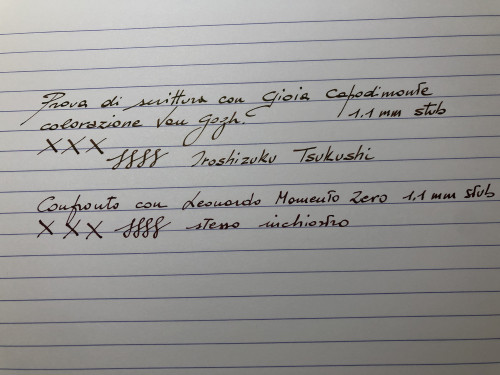 Prova di scrittura con Gioia Capodimonte
colorazione Van Gogh. 1.1 mm stub
XXX
ffff Iroshizuku Tsukushi
Confronto con Leonardo Momento Zero 1.1 mm stub
XXX ffff stesso inchiostro